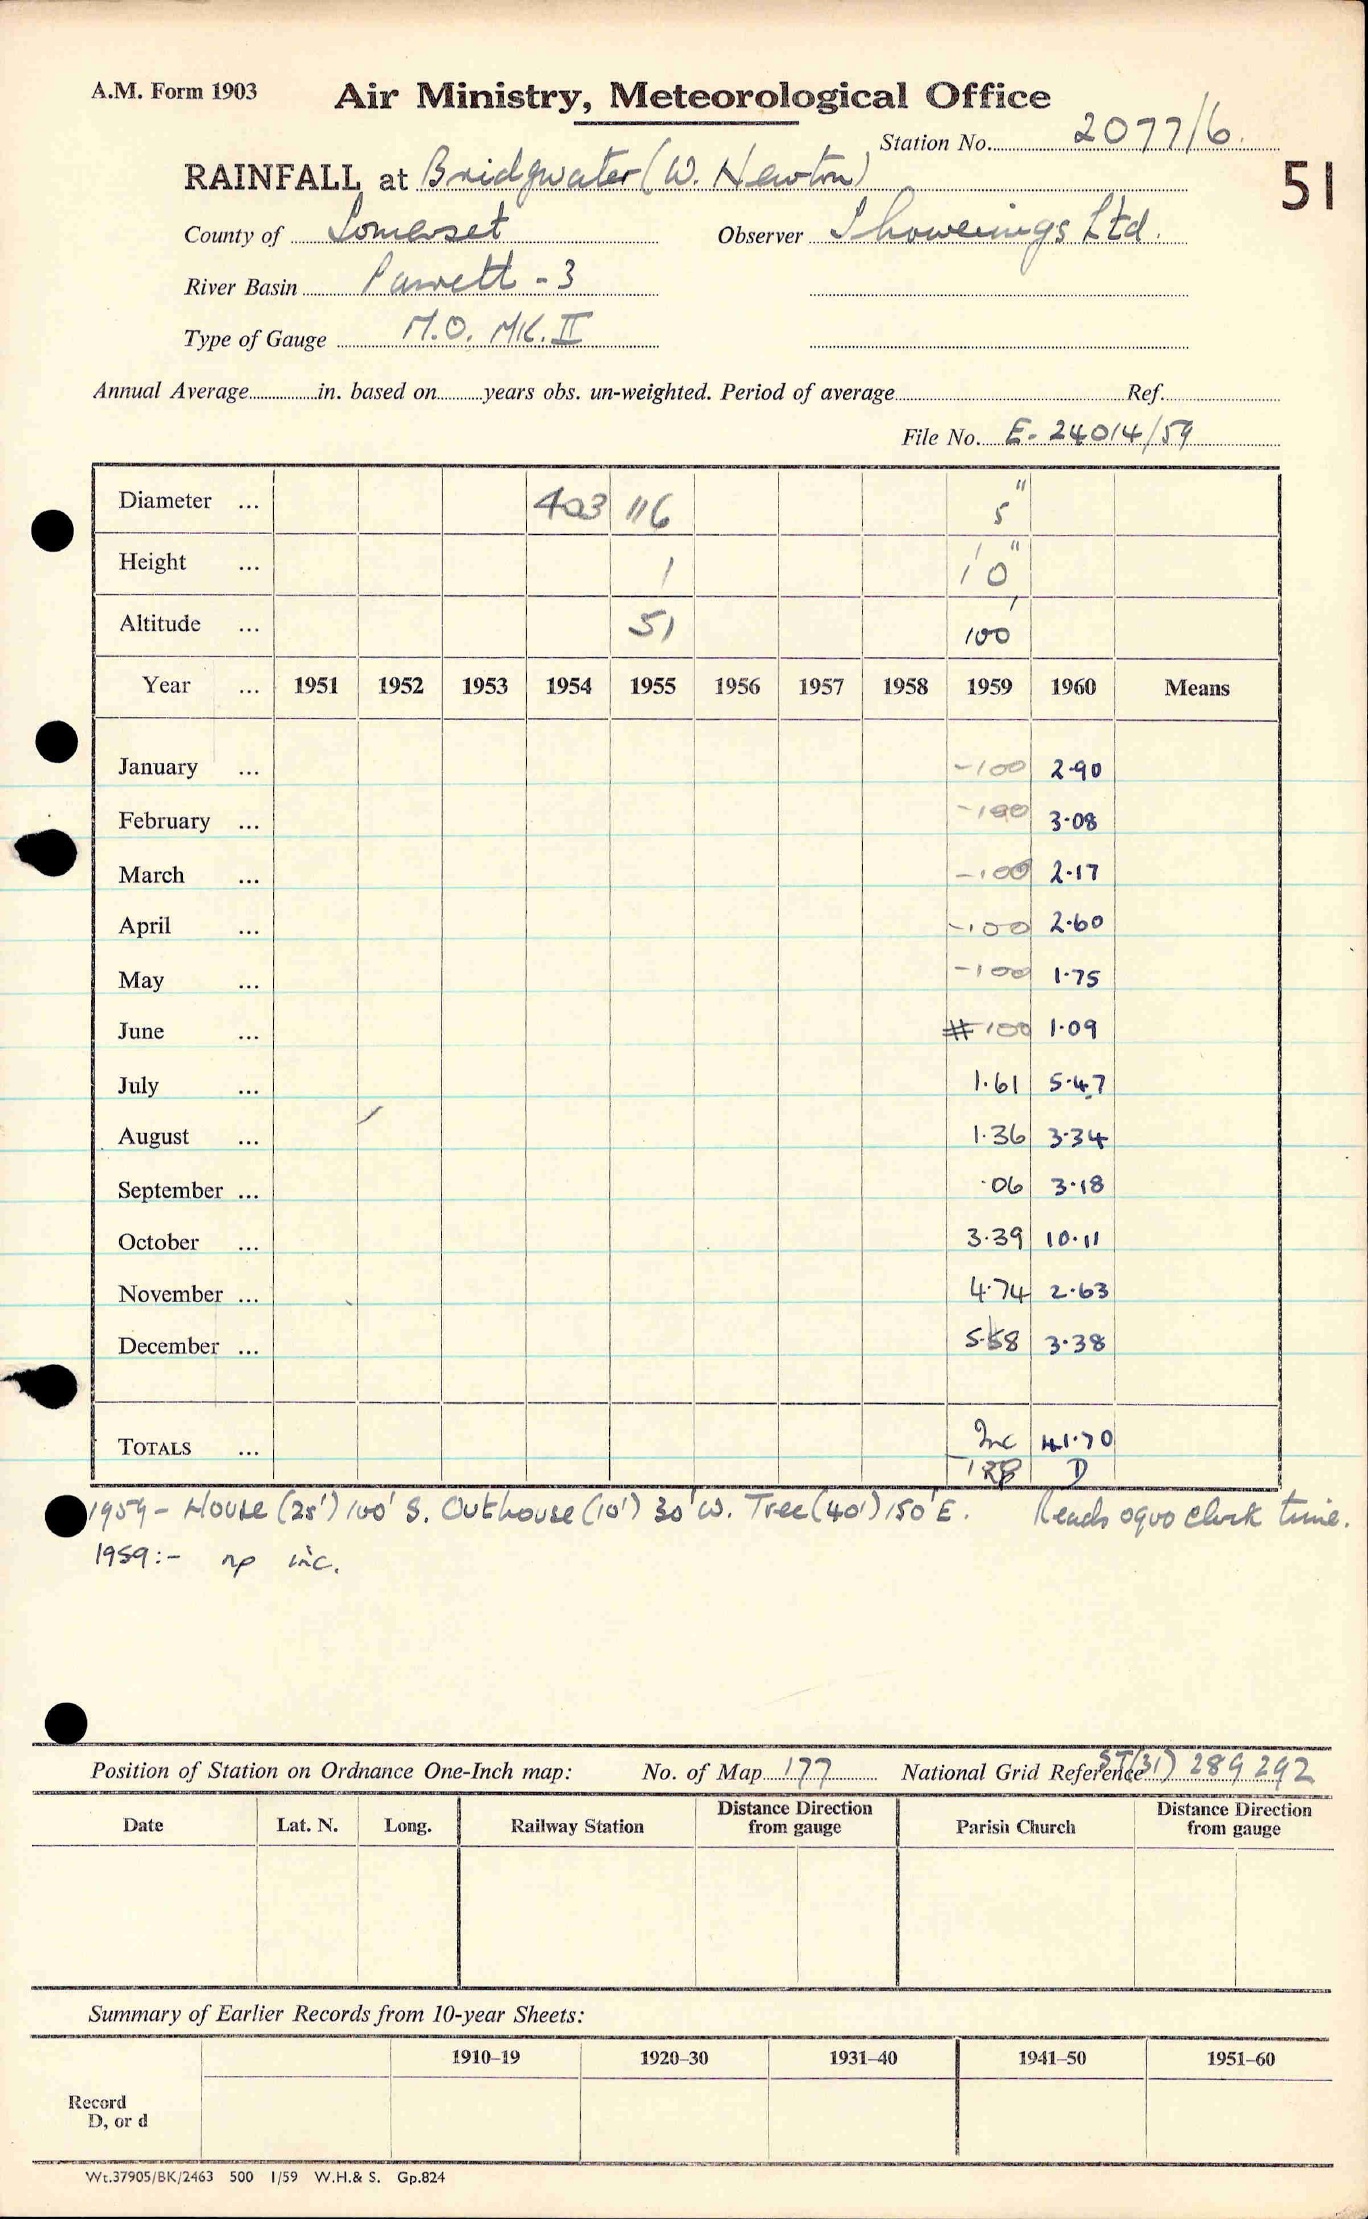 A.M. Form 1903
Air Ministry, Meteorological Office
Station No. 2077/6.
RAINFALL at Bridgwater (W. Newton)
51
County of Somerset Observer Showerings Ltd.
River Basin Parrett - 3
Type of Gauge M.O. MK. II
Annual Average in. based on years obs. un-weighted. Period of average Ref.
File No. E- 24014/59
Diameter ... 403 116 5"
Height ... 1 1' 0"
Altitude ... 51 100'
Year ... 1951 1952 1953 1954 1955 1956 1957 1958 1959 1960 Means
January ... -100 2·90
February ... -100 3·08
March ... -100 2·17
April ... -100 2·60
May ... -100 1·75
June ... # 100 1·09
July ... 1·61 5·47
August ... 1·36 3·34
September ... ·06 3·18
October ... 3·39 10·11
November ... 4·74 2·63
December ... 5·58 3·38
TOTALS ... Inc 41·70
D
1959 - House (25') 100' S. Outhouse (10') 30' W. Tree (40') 150' E. Reads 0900 clock time.
1959:- np inc.
Position of Station on Ordnance One-Inch map: No. of Map 177 National Grid Reference ST(31) 289 292
Date Lat. N. Long. Railway Station Distance Direction from gauge Parish Church Distance Direction from gauge
Summary of Earlier Records from 10-year Sheets:
1910–19 1920–30 1931–40 1941–50 1951–60
Record
D, or d
Wt.37905/BK/2463 500 1/59 W.H.& S. Gp.824